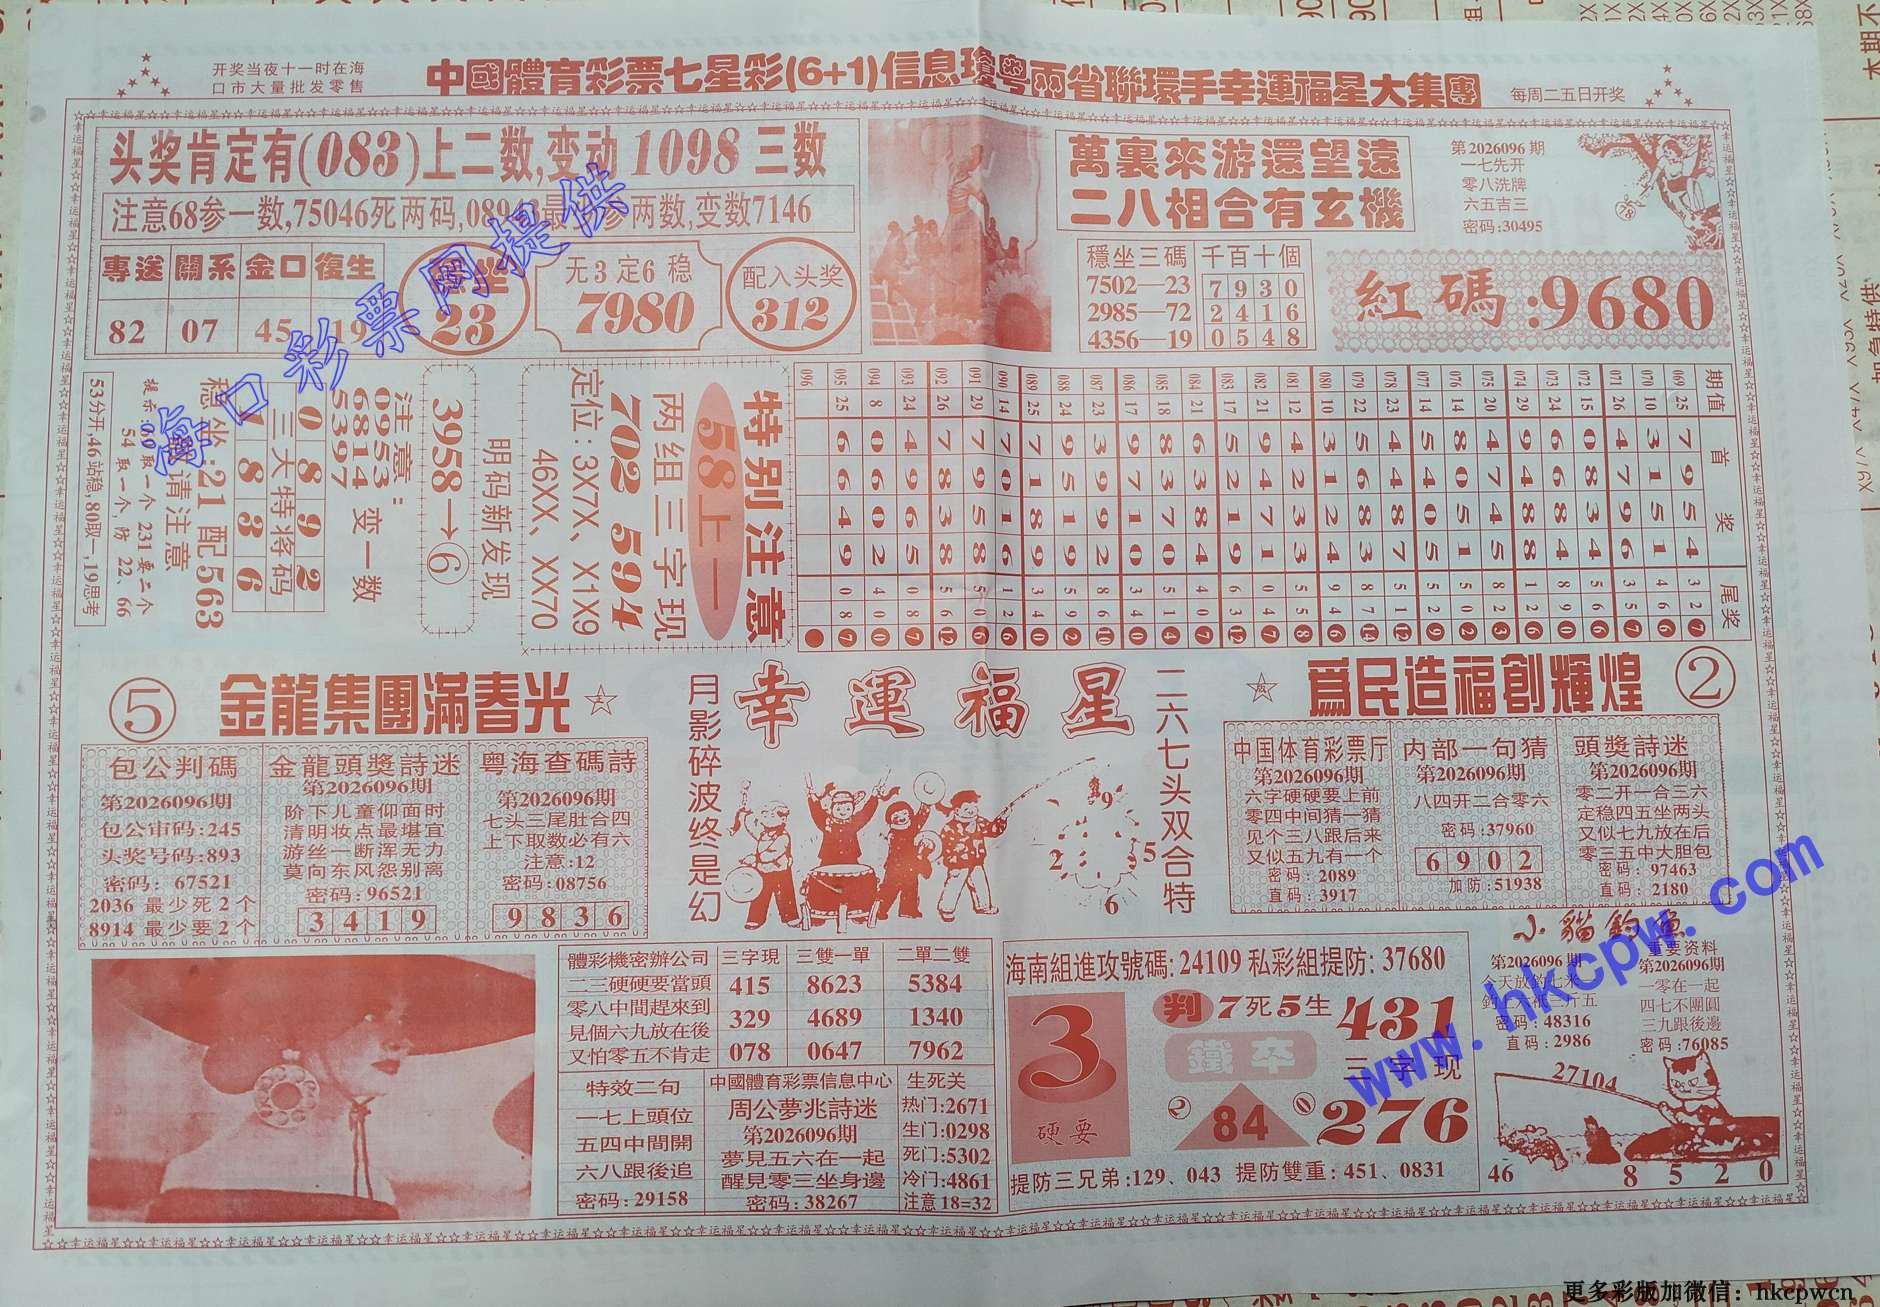 开奖当夜十一时在海
口市大量批发零售
中國體育彩票七星彩(6+1)信息瓊粤兩省聯環手幸運福星大集團
每周二五日开奖
头奖肯定有(083)上二数,变动1098三数
专送 關系 金口 復生
82 07 45 19
23
无3定6稳
7980
配入头奖
312
萬裏來游還望遠
二八相合有玄機
第2026096期
一七先开
零八洗牌
六五吉三
密码:30495
穩坐三碼
7502—23
2985—72
4356—19
千百十個
7930
2416
0548
紅碼:9680
53分开,46站稳,80取一,19思考
231要二个
54取一个,防22、66
请注意
稳坐:21配563
三大特将码
0892
7836
注意:
0953
6814变一数
5397
3958→⑥
明码新发现
定位:3X7X、X1X9
46XX、XX70
702 594
两组三字现
58上一
特别注意
期值 首奖 尾奖
096
095 25 6649 08 7
094 8 0602 40 0
093 24 4965 08 7
092 26 7838 56 12
091 29 7958 50 6
090 14 7016 12 6
089 25 7189 34 0
088 24 9519 59 2
087 23 3992 86 10
086 17 9710 34 0
085 18 8370 51 4
084 21 6384 40 7
083 17 5219 63 12
082 21 9471 04 7
081 12 4233 55 8
080 10 3124 94 6
079 22 5683 87 14
078 23 4487 51 12
077 14 5405 52 9
076 14 8051 50 2
075 20 4745 82 3
074 29 9488 21 0
073 24 6684 89 0
072 15 0834 64 6
071 26 4796 35 7
070 10 3151 46 6
069 25 7954 32 7
⑤
金龍集團滿春光
包公判碼
第2026096期
包公市码:245
头奖号码:893
密码: 67521
2036 最少死2个
8914 最少要2个
金龍頭獎詩迷
第2026096期
阶下儿童仰面时
清明妆点最堪宜
游丝一断浑无力
莫向东风怨别离
密码:96521
3419
粤海查碼詩
第2026096期
七头三尾肚合四
上下取数必有六
注意:12
密码:08756
9836
月影碎波终是幻
幸運福星
9
2 3 5
6
二六七头双合特
爲民造福創輝煌
②
中国体育彩票厅
第2026096期
六字硬硬要上前
零四中间猜一猜
见个三八跟后来
又似五九有一个
密码: 2089
直码: 3917
内部一句猜
第2026096期
八四开二合零六
密码:37960
6902
加防:51938
頭獎詩迷
第2026096期
零二开一合三六
定稳四五坐两头
又似七九放在后
零三五中大胆包
密码: 97463
直码: 2180
體彩機密辦公司
二三硬硬要當頭
零八中間趕來到
見個六九放在後
又怕零五不肯走
三字現 三雙一單 二單二雙
415 8623 5384
329 4689 1340
078 0647 7962
特效二句
一七上頭位
五四中間開
六八跟後追
密码:29158
中國體育彩票信息中心
周公夢兆詩迷
第2026096期
夢見五六在一起
醒見零三坐身邊
密码:38267
生死关
热门:2671
生门:0298
死门:5302
冷门:4861
注意18=32
海南組進攻號碼:24109 私彩組提防:37680
3
硬要
判 7死5生
鐵卒
2 84 0
431
三字现
276
提防三兄弟:129、043 提防雙重:451、0831
小貓釣魚
第2026096期
今天放釣七米
密码:48316
直码:2986
重要资料
第2026096期
一零在一起
四七不團圓
三九跟後邊
密码:76085
27104
46 8 5 2 0
海口彩票网提供
www.hkcpw.com
更多彩版加微信：hkcpwcn